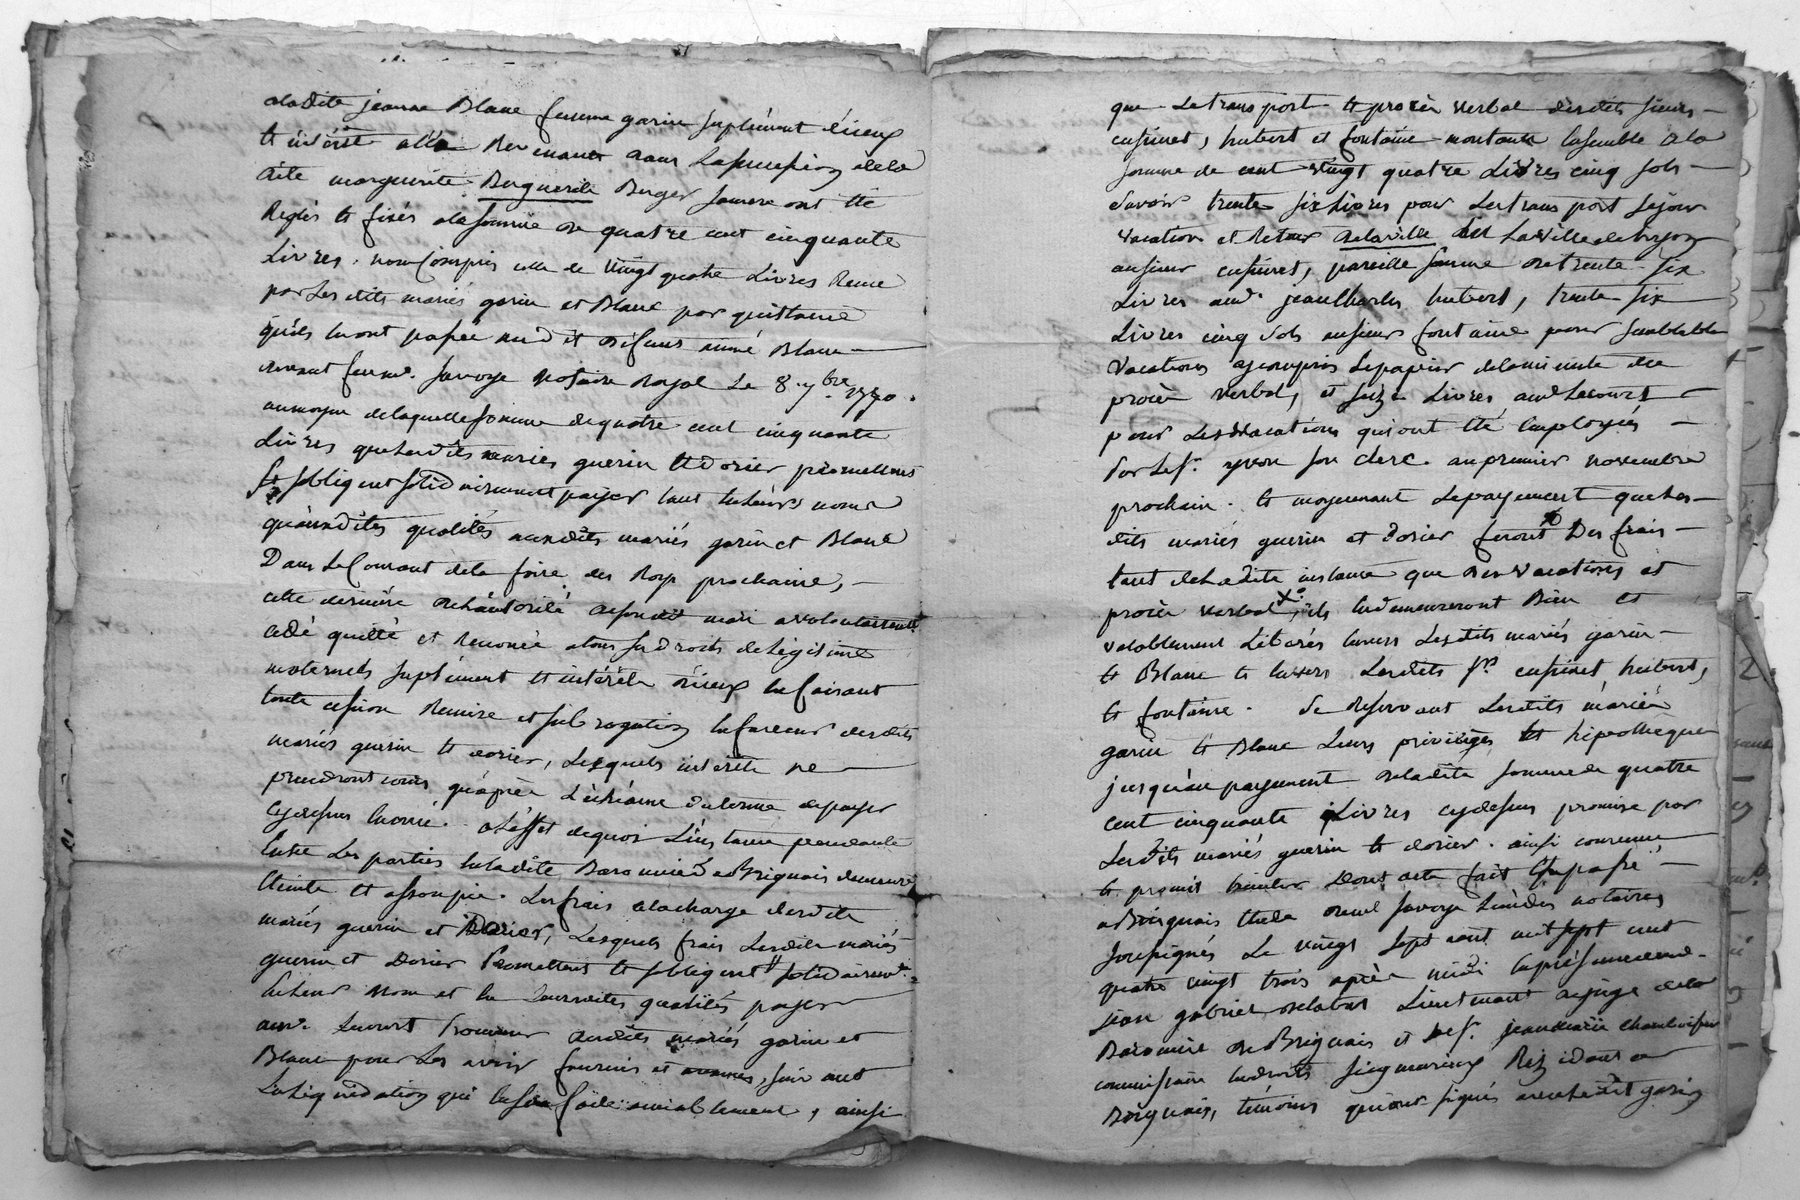 aladite jeanne Blanc femme garin suplément d'iceux
et intérêt elle Revenant dans la succession de la
dite marguerite Burguerite Berger sa mere ont été
Reglés et fixés a la somme de quatre cent cinquante
Livres, non compris celle de vingt quatre Livres Reçue
par Lesdits mariés garin et Blanc par quittance
qu'ils en ont passée audit défunt aimé Blanc
devant feu me. Savoye Notaire Royal Le 8. 7bre 1770.
au moyen de laquelle somme de quatre cent cinquante
Livres que lesdits mariés guerin et dorier promettent
et s'obligent solidairement payer tant en leurs noms
qu'auxdites qualités auxdits mariés garin et Blanc
Dans le Courant de la foire des Roys prochaine,
cette derniere de l'autorité de son dit mari a volontairement
cedé quitté et Renoncé a tous ses droits de Légitime
maternels suplément et intérêts d'iceux en faisant
toute cession Remise et subrogation en faveur desdits
mariés guerin et dorier, Lesquels intérêts ne
prendront cours qu'après L'échéance du terme de payer
cy dessus énoncé. a L'effet de quoi L'instance pendante
entre Les parties en ladite Baronnie de Brignais demeure
éteinte et assoupie. Les frais a la charge desdits
mariés guerin et Dorier, Lesquels frais Lesdits mariés
guerin et Dorier Promettent et s'obligent solidairemt.
en leur Nom et en Jceurdites qualités payer
aud. Lecourt Procureur desdits mariés garin et
Blanc pour Les avoir fournis et avancés, suivant
La Liquidation qui en sera faite amiablement, ainsi
que Le transport et procès verbal desdits sieurs
cusinet, hubert et fontaine montant Ensemble a la
somme de cent vingt quatre Livres cinq sols
savoir trente six Livres pour Le transport sejour
vacation et Retour de la ville en La ville de Lyon
au sieur cusinet, pareille somme de trente six
Livres aud. jean Charles hubert, trente six
Livres cinq sols au sieur fontaine pour semblables
vacations y compris Le papier de la minute du
procès verbal, et seize Livres aud Lecourt
pour Les vacations qui ont été Employées
Par Le sr. yvon son clerc. au premier novembre
prochain. et moyennant Le payement que les
dits mariés guerin et dorier feront Des frais
tant de Ladite instance que des vacations et
procès verbal, ils en demeureront Bien et
valablement Liberés envers Lesdits mariés garin
et Blanc et envers Lesdits srs. cusinet, hubert,
et fontaine. se Réservant Lesdits mariés
garin et Blanc Leurs privileges et hipotheques
jusqu'au payement de ladite somme de quatre
cent cinquante Livres cy dessus promise par
Lesdits mariés guerin et dorier. ainsi convenu
et promis tenir Dont acte fait et passé
a Brignais Etude de me Savoye L'un des notaires
soussignés Le vingt sept aout mil sept cent
quatre vingt trois après midi En présence de me.
jean gabriel delabat Lieutenant de juge de la
Baronnie de Brignais et de sr. jean marie
commissaire en droits seigneuriaux Residant a
Brignais, témoins qui ont signés avec ledit garin